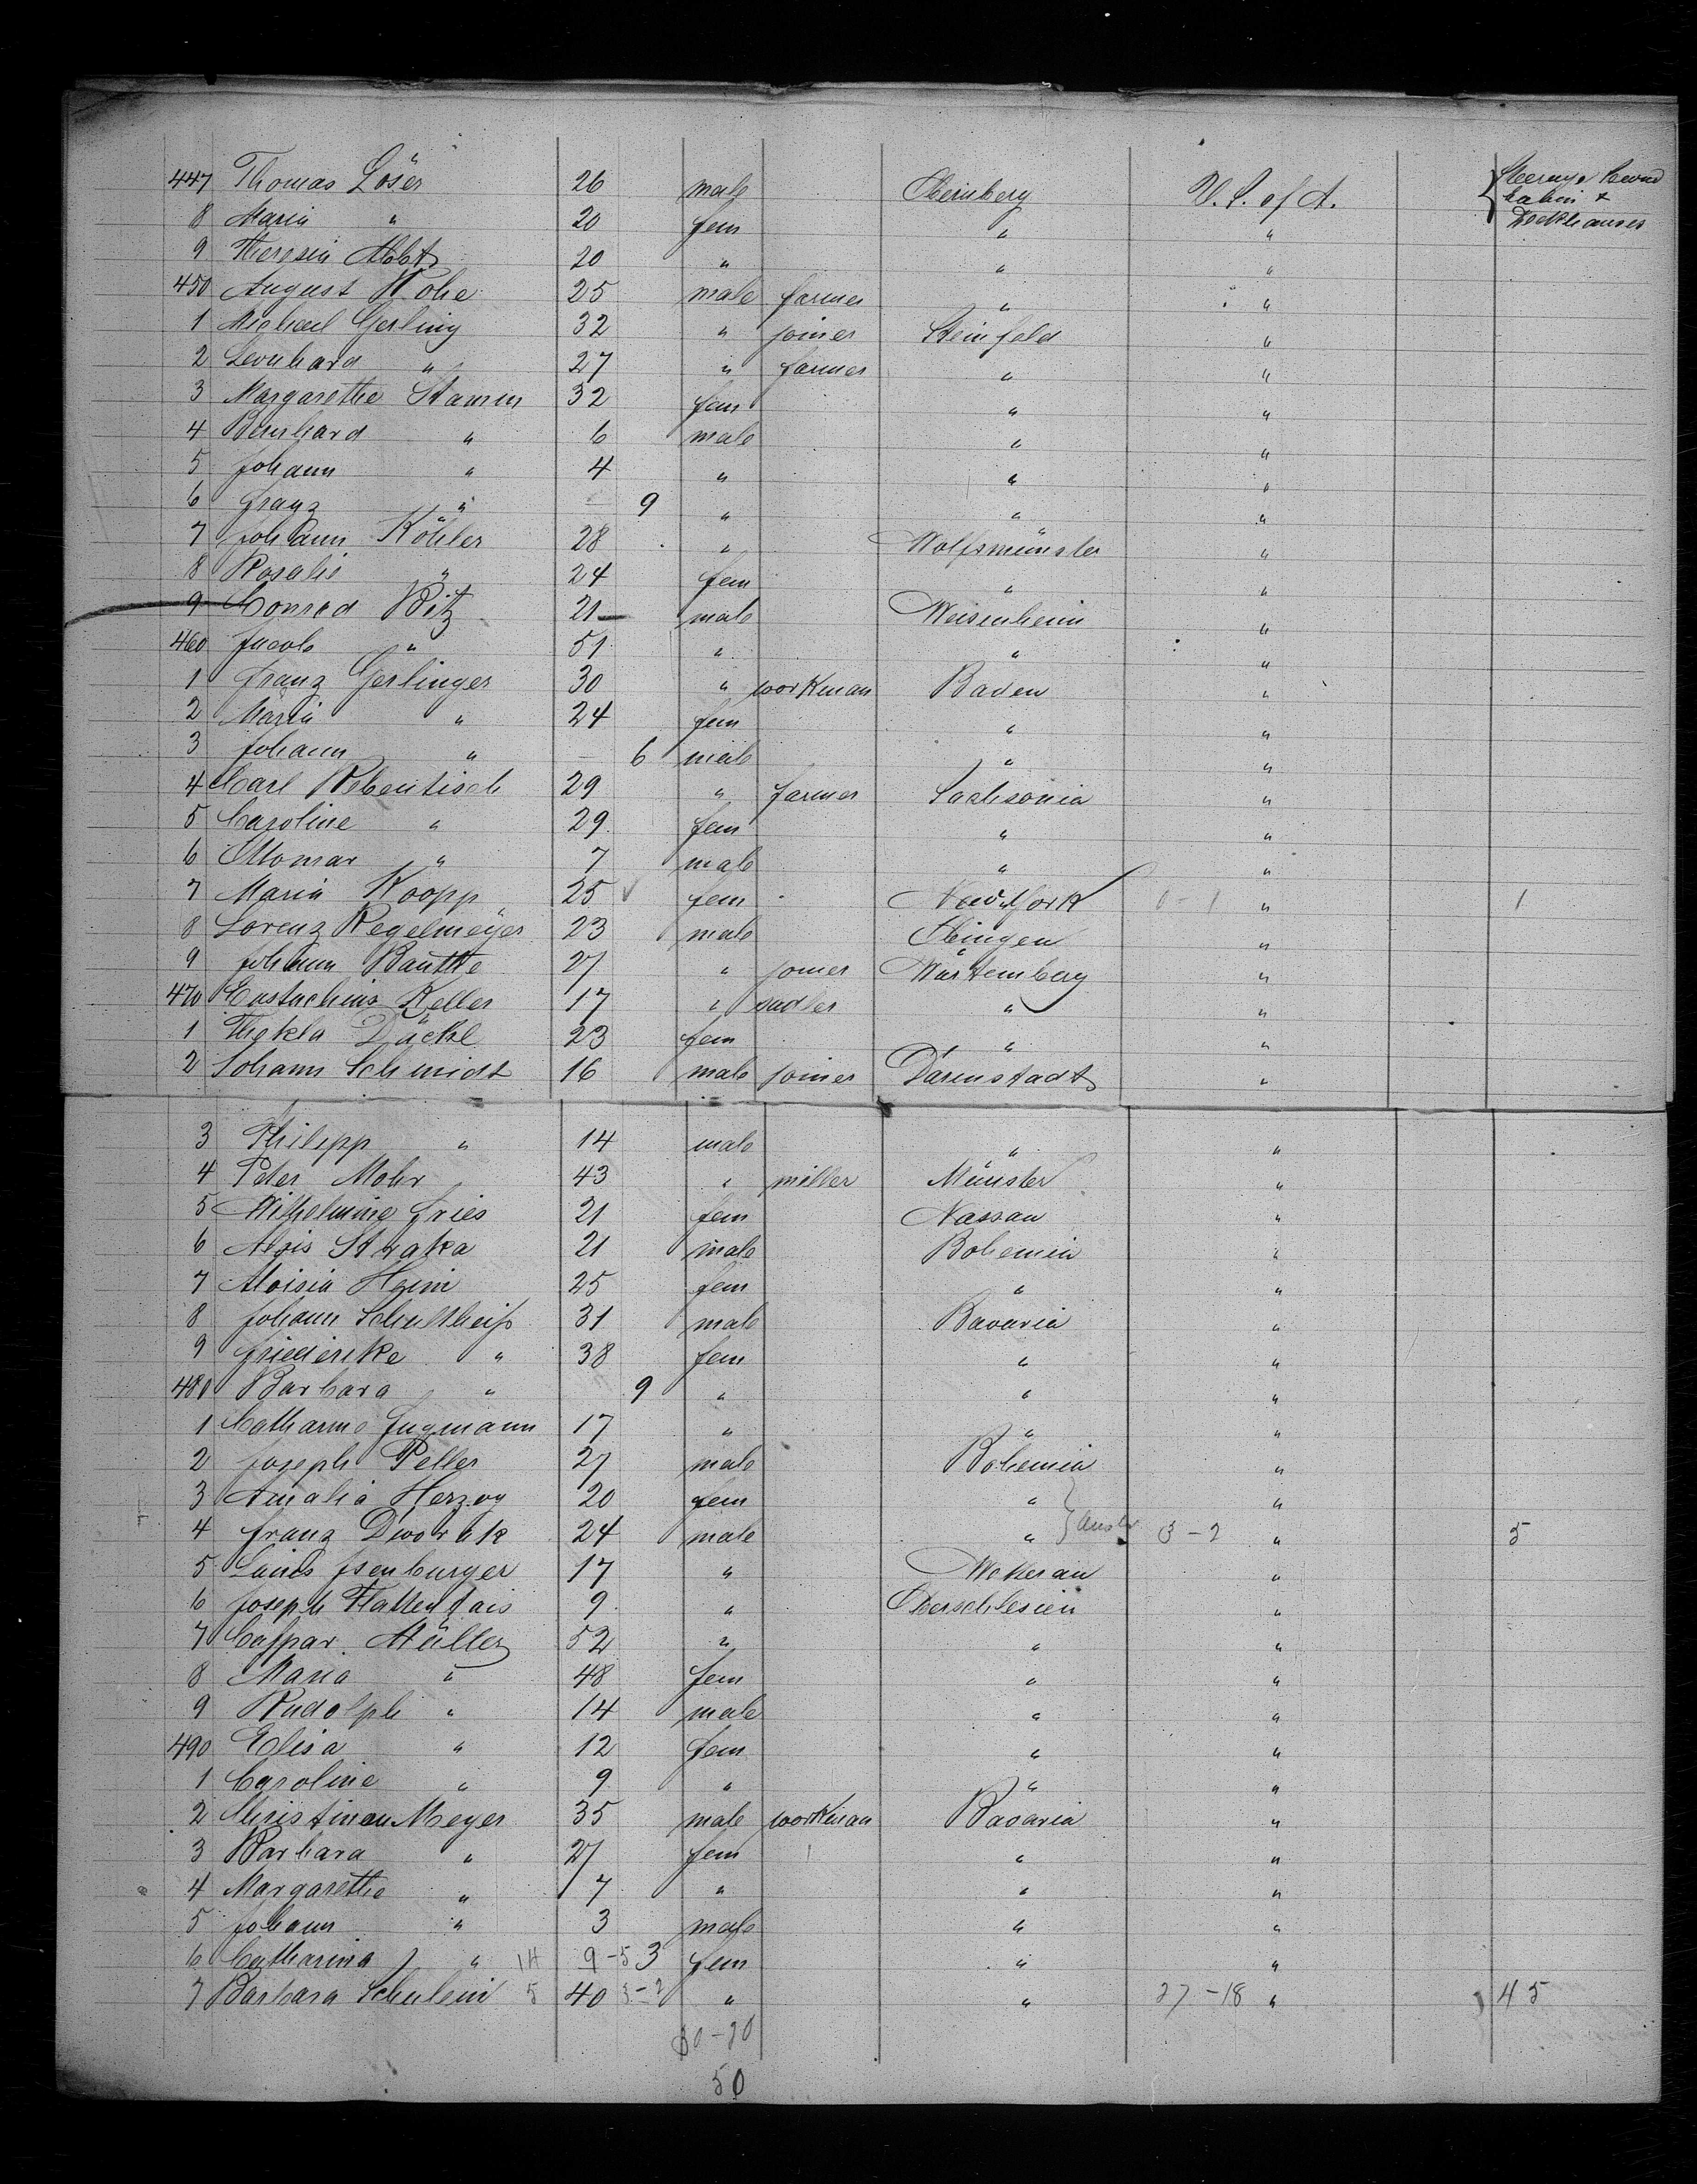 447 Thomas Löser 26 male Obernberg U. S. of A. Steerage Cound Cabin & Deckhauses
8 Maria " 20 fem " "
9 Theresia Abbt 20 " " "
450 August Hohe 25 male farmer " "
1 Michael Gerling 32 " joiner Steinfeld "
2 Leonhard " 27 " farmer " "
3 Margarethe Stamm 32 fem " "
4 Bernhard " 6 male " "
5 Johann " 4 " " "
6 Franz " 9 " " "
7 Johann Köhler 28 " Wolfsmünster "
8 Rosalie " 24 fem " "
9 Conrad Bitz 21 male Weisenheim "
460 Jacob " 51 " " "
1 Franz Gerlinger 30 " workman Baden "
2 Maria " 24 fem " "
3 Johann " 6 male " "
4 Carl Rebentisch 29 " farmer Sachsonia "
5 Caroline " 29 fem " "
6 Ottomar " 7 male " "
7 Maria Koopp 25 fem New York 0-1 " 1
8 Lorenz Regelmeyer 23 male "
9 Johann Bautte 27 " joiner Würtemberg "
470 Eustachius Keller 17 " sadler " "
1 Thekla Däckl 23 fem " "
2 Johann Schmidt 16 male joiner Darmstadt "
3 Philipp " 14 male " "
4 Peter Mohr 43 " miller Münster "
5 Wilhelmine Fries 21 fem Nassau "
6 Straka 21 male Bohemia "
7 Aloisia Heini 25 fem " "
8 Johann Schultheiß 31 male Bavaria "
9 Friederike " 38 fem " "
480 Barbara " 9 " " "
1 Catharine Jugmann 17 " " "
2 Joseph Peller 27 male Bohemia "
3 Amalia Herzog 20 fem " "
4 Franz Dworak 24 male " Austr 3-2 " 5
5 Louis Isenburger 17 " "
6 Joseph 9 " Oberschlesien "
7 Caspar Müller 52 " " "
8 Maria " 48 fem " "
9 Rudolph " 14 male " "
490 Elisa " 12 fem " "
1 Caroline " 9 " " "
2 Christinan Meyer 35 male workman Bavaria "
3 Barbara " 27 fem " "
4 Margarethe " 7 " " "
5 Johann " 3 male " "
6 Catharina " 14 9-5 3 fem " "
7 Barbara Schulein 5 40 3-2 " " 27-18 " 45
30-20
50